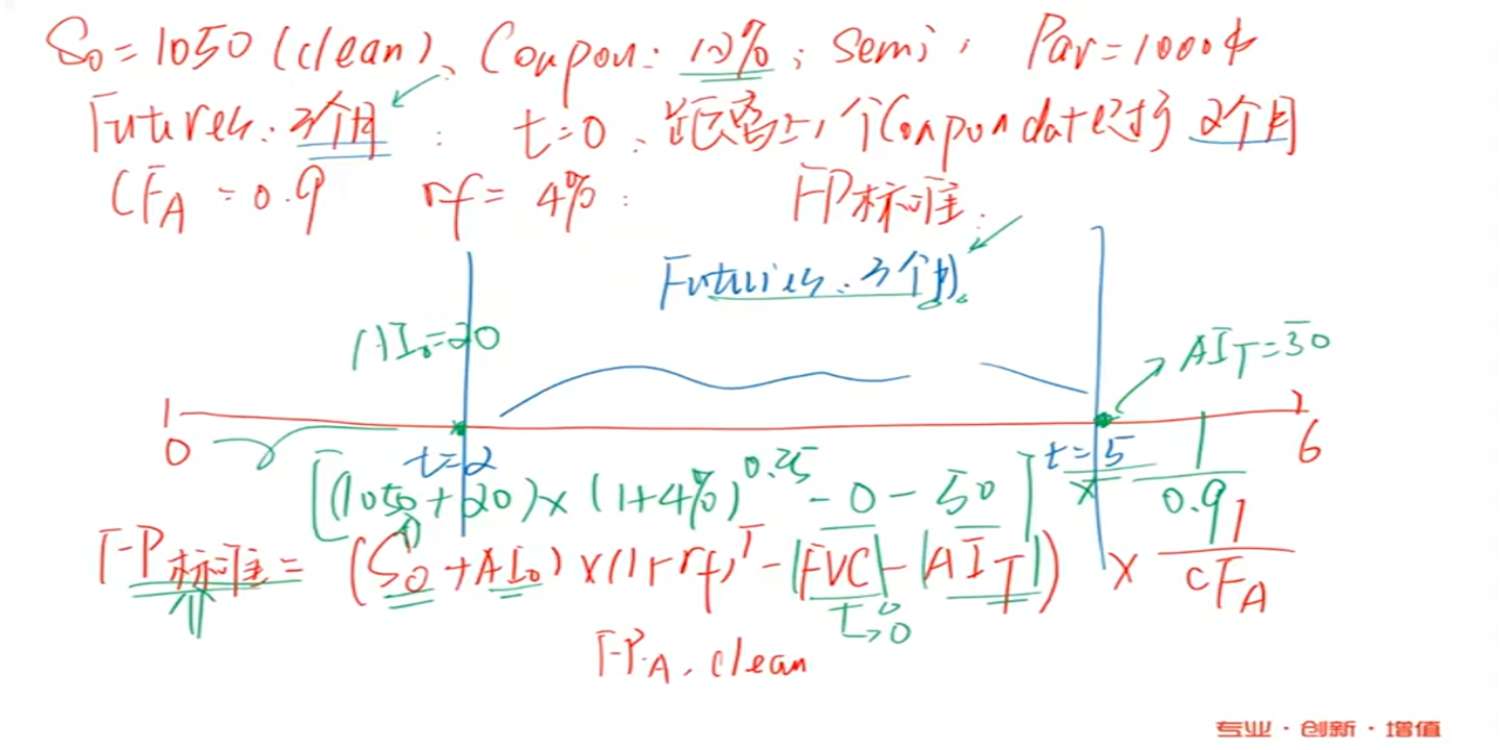 S₀=1050 (clean)、Coupon: 10%; semi, Par=1000$
Futures: 3个月: t=0、距离上1个Coupon date已过了2个月
CFA=0.9 rf=4%: FP标准.
Futures: 3个月
AI₀=20
AI_T=50
0 t=2 t=5 6
[(1050+20)×(1+4%)^0.25 - 0 - 50] × 1/0.9
FP标准=(S₀+AI₀)×(1+rf)^T-(FVC)-(AI_T))×1/CFA
↳0
FPA, clean
专业·创新·增值